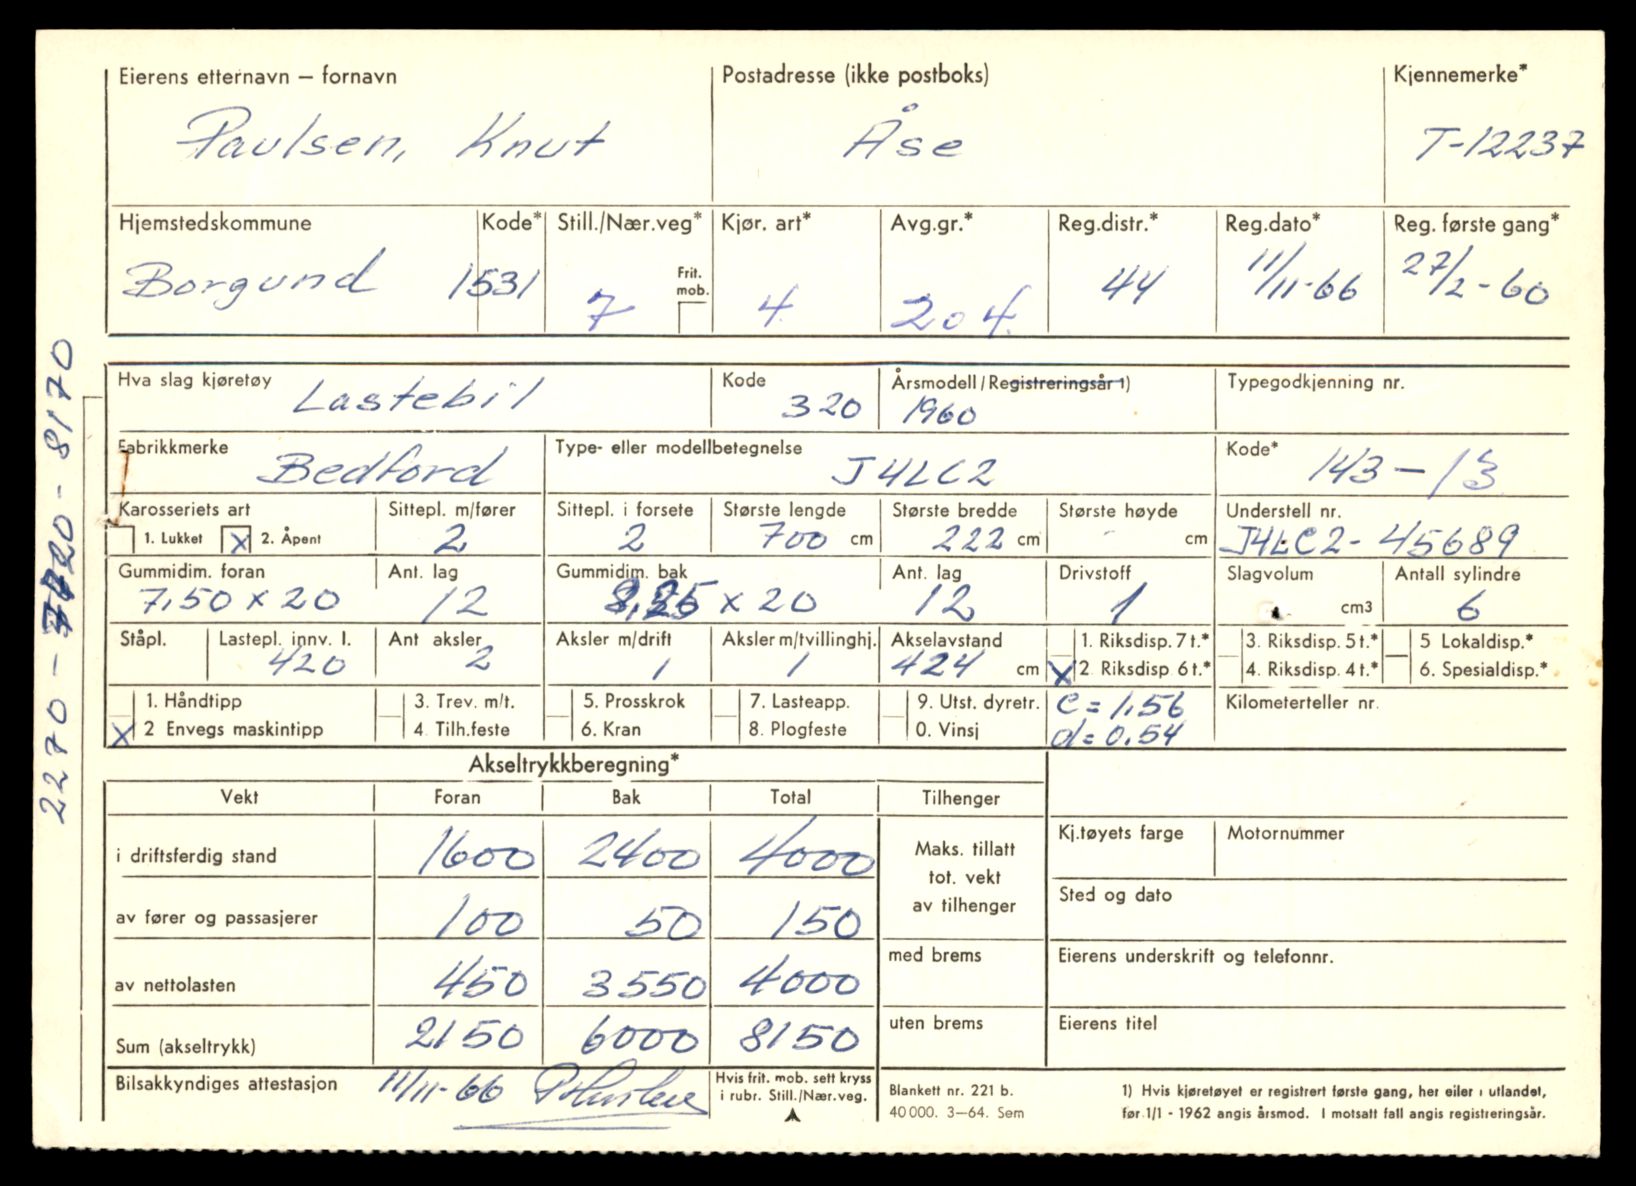 Eierens etternavn – fornavn Postadresse (ikke postboks) Kjennemerke*
Paulsen, Knut Åse T-12237
Hjemstedskommune Kode* Still./Nær.veg* Kjør. art* Avg.gr.* Reg.distr.* Reg.dato* Reg. første gang*
Borgund 1531 7 Frit. mob. 4 204 44 11/11-66 27/2-60
Hva slag kjøretøy Kode Årsmodell/Registreringsår 1) Typegodkjenning nr.
Lastebil 320 1960
Fabrikkmerke Type- eller modellbetegnelse Kode*
Bedford J4LC2 143-13
Karosseriets art Sittepl. m/fører Sittepl. i forsete Største lengde Største bredde Største høyde Understell nr.
1. Lukket X 2. Åpent 2 2 700 cm 222 cm - cm J4LC2-45689
Gummidim. foran Ant. lag Gummidim. bak Ant. lag Drivstoff Slagvolum Antall sylindre
7,50 x 20 12 8,25 x 20 12 1 cm3 6
Ståpl. Lastepl. innv. l. Ant aksler Aksler m/drift Aksler m/tvillinghj. Akselavstand 1. Riksdisp. 7 t.* 3. Riksdisp. 5 t.* 5 Lokaldisp.*
420 2 1 1 424 cm X 2 Riksdisp 6 t.* 4. Riksdisp. 4 t.* 6. Spesialdisp.*
1. Håndtipp 3. Trev. m/t. 5. Prosskrok 7. Lasteapp. 9. Utst. dyretr. C = 1,56 Kilometerteller nr.
X 2 Envegs maskintipp 4 Tilh.feste 6. Kran 8. Plogfeste 0. Vinsj d = 0,54
Akseltrykkberegning*
Vekt Foran Bak Total Tilhenger
i driftsferdig stand 1600 2400 4000 Maks. tillatt
tot. vekt
av tilhenger
Kj.tøyets farge Motornummer
Sted og dato
av fører og passasjerer 100 50 150
av nettolasten 450 3550 4000 med brems Eierens underskrift og telefonnr.
Sum (akseltrykk) 2150 6000 8150 uten brems Eierens titel
Bilsakkyndiges attestasjon 11/11-66 Hvis frit. mob. sett kryss
i rubr. Still./Nær.veg.
Blankett nr. 221 b.
40 000. 3–64. Sem
1) Hvis kjøretøyet er registrert første gang, her eller i utlandet,
før 1/1 - 1962 angis årsmod. I motsatt fall angis registreringsår.